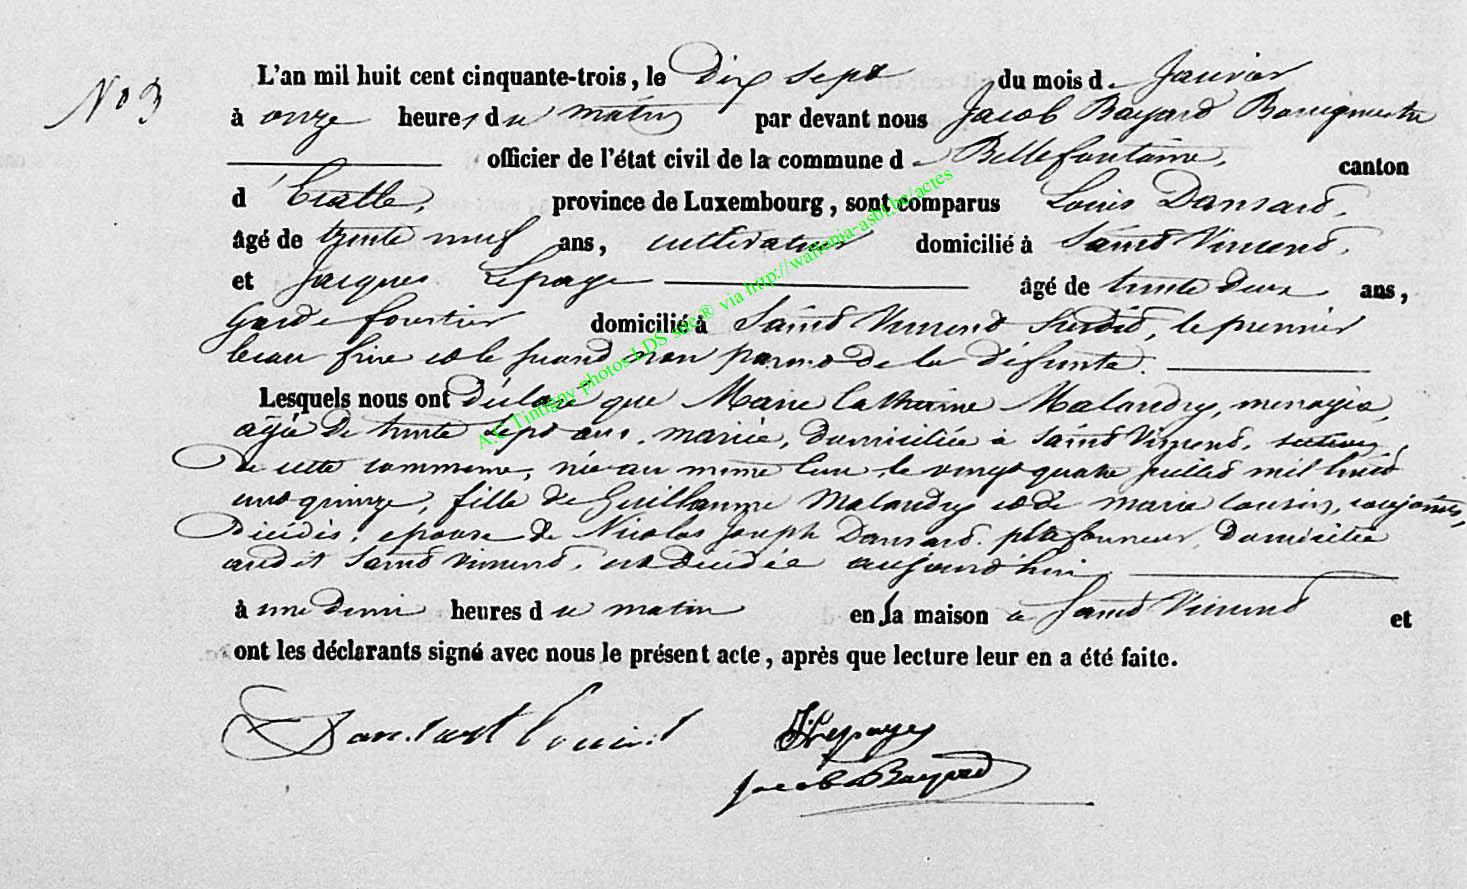 No 3
L'an mil huit cent cinquante-trois, le Dix sept du mois de Janvier
à onze heures du matin par devant nous Jacob Bayard Bourgmestre
officier de l'état civil de la commune de Bellefontaine, canton
d'Etalle, province de Luxembourg, sont comparus Louis Dansard,
âgé de trente neuf ans, cultivateur domicilié à Saint Vincent,
et Jacques Lepage âgé de trente deux ans,
Garde forestier domicilié à Saint Vincent susdit, le premier
beau frère et le second non parent de la défunte.
Lesquels nous ont Déclaré que Marie Catherine Malandry, menagère,
agée de trente sept ans, mariée, domiciliée à Saint Vincent, section
de cette commune, née au même lieu, le vingt quatre juillet mil huit
cent quinze, fille de Guillaume Malandry et de Marie Cousin, conjoints,
Décédés, epouse de Nicolas Joseph Dansard plafonneur, domiciliée
audit Saint Vincent, est décédée aujourd'hui
à une demi heures du matin en la maison à Saint Vincent et
ont les déclarants signé avec nous le présent acte, après que lecture leur en a été faite.
Dansart Louis
J. Lepage
Jacob Bayard
A.C Tintigny photos LDS site® via http://wallonia-asbl.be/actes